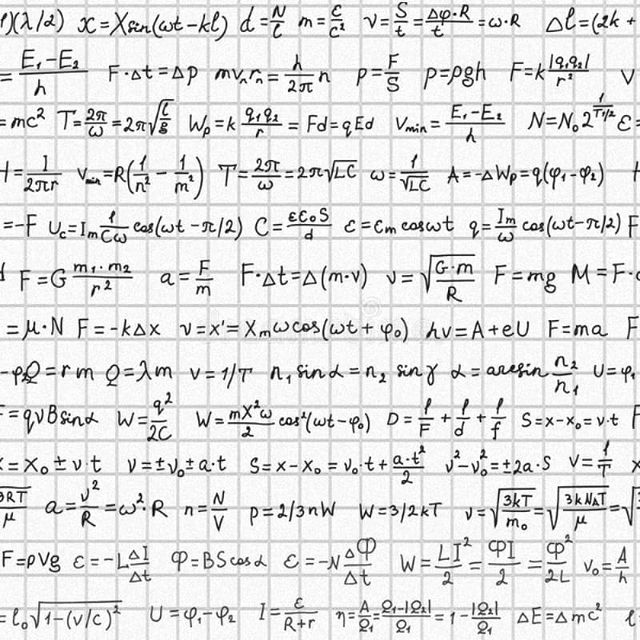 1)(λ/2) x=Xsin(ωt-kl) d=N/l m=ε/c² ν=S/t=Δφ·R/t=ω·R Δl=(2k+
=E₁-E₂/h F·Δt=Δp mvₙrₙ=h/2π n p=F/S p=ρgh F=k|q₁q₂|/r² V
=mc² T=2π/ω=2π√(l/g) Wₚ=k q₁q₂/r=Fd=qEd νmin=E₁-E₂/h N=N₀2^(1/T1/2) ε=
H=I/2πr νmin=R(1/n²-1/m²) T=2π/ω=2π√LC ω=1/√LC A=-ΔWₚ=q(φ₁-φ₂)
=-F Uc=Im 1/Cω cos(ωt-π/2) C=εε₀S/d ε=εm cosωt q=Im/ω cos(ωt-π/2) F
F=G m₁·m₂/r² a=F/m F·Δt=Δ(m·v) ν=√(G·m/R) F=mg M=F·
=μ·N F=-kΔx ν=x'=Xmωcos(ωt+φ₀) hν=A+eU F=ma F
Q=rm Q=λm ν=1/T n₁ sinα=n₂ sinγ α=arcsin n₂/n₁ U=φ₁
F=qvBsinα W=q²/2C W=mX²ω/2 cos²(ωt-φ₀) D=1/F+1/d+1/f S=x-x₀=v·t F
x=x₀±v·t v=±v₀±a·t S=x-x₀=v₀·t+a·t²/2 v²-v₀²=±2a·S ν=1/T x
3RT/μ a=v²/R=ω²·R n=N/V p=2/3nW W=3/2kT v=√(3kT/m₀)=√(3kNAT/μ)=√
F=ρVg ε=-LΔI/Δt Φ=BScosα ε=-NΔΦ/Δt W=LI²/2=ΦI/2=Φ²/2L ν₀=A/h
=l₀√(1-(v/c)²) U=φ₁-φ₂ I=ε/R+r η=A/Q₁=Q₁-|Q₂|/Q₁=1-|Q₂|/Q₁ ΔE=Δmc²